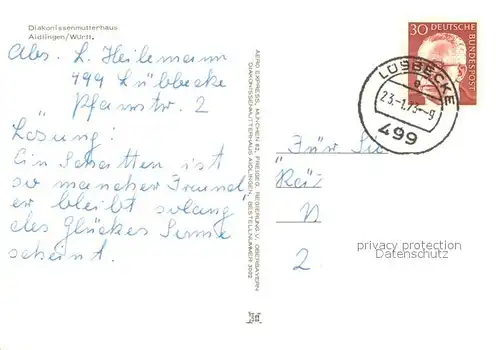 Diakonissenmutterhaus
Aidlingen/Württ.
Abs. L. Heilemann
499 Lübbecke
Pfarrstr. 2
Lösung:
Ein Schatten ist
so mancher Freund
er bleibt solang'
des Glückes Sonne
scheint.
AERO EXPRESS, MÜNCHEN 82, FREIGEG. REGIERUNG V. OBERBAYERN
DIAKONISSENMUTTERHAUS AIDLINGEN · BESTELLNUMMER 3002
30 DEUTSCHE
BUNDESPOST
LÜBBECKE
23.-1.73.-9
499
Für Sie
2
privacy protection
Datenschutz